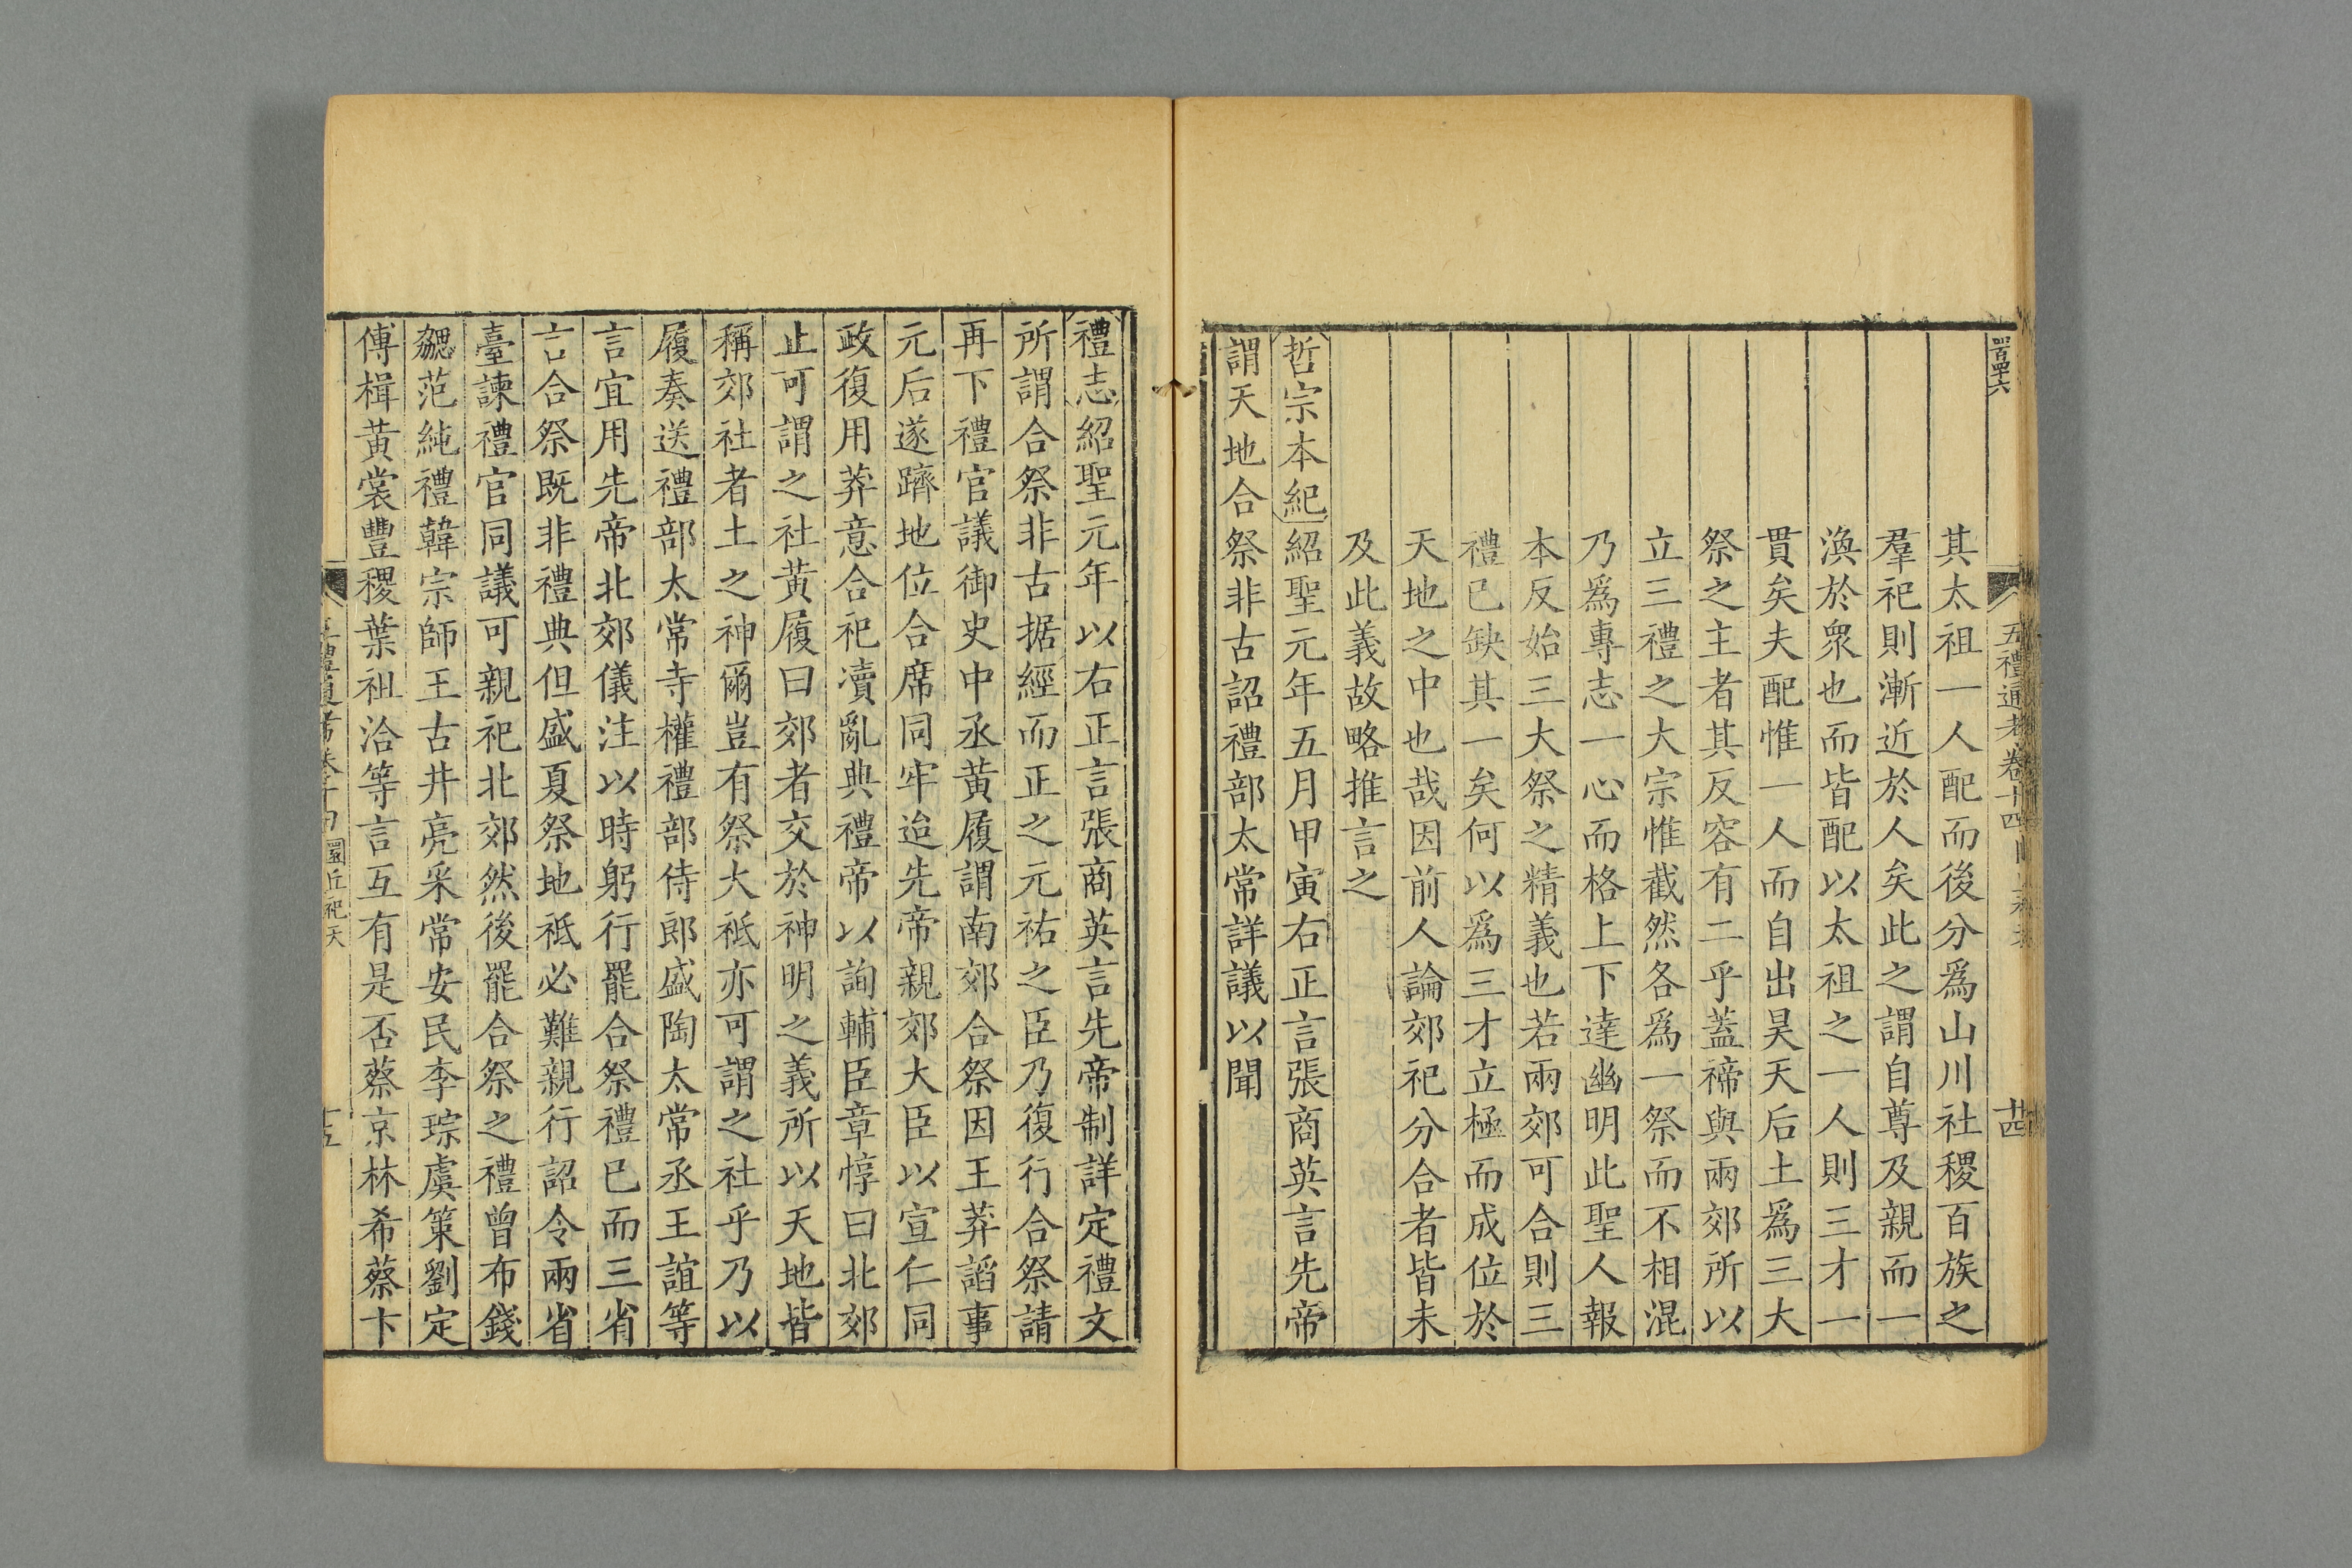 其太祖一人配而後分爲山川社稷百族之
羣祀則漸近於人矣此之謂自尊及親而一
渙於衆也而皆配以太祖之一人則三才一
貫矣夫配惟一人而自出昊天后土爲三大
祭之主者其反容有二乎蓋禘與兩郊所以
立三禮之大宗惟截然各爲一祭而不相混
乃爲專志一心而格上下達幽明此聖人報
本反始三大祭之精義也若兩郊可合則三
禮已缺其一矣何以爲三才立極而成位於
天地之中也哉因前人論郊祀分合者皆未
及此義故略推言之
哲宗本紀紹聖元年五月甲寅右正言張商英言先帝
謂天地合祭非古詔禮部太常詳議以聞
五禮通考卷十四
禮志紹聖元年以右正言張商英言先帝制詳定禮文
所謂合祭非古据經而正之元祐之臣乃復行合祭請
再下禮官議御史中丞黃履謂南郊合祭因王莽謟事
元后遂躋地位合席同牢迨先帝親郊大臣以宣仁同
政復用莽意合祀瀆亂典禮帝以詢輔臣章惇曰北郊
止可謂之社黃履曰郊者交於神明之義所以天地皆
稱郊社者土之神爾豈有祭大祗亦可謂之社乎乃以
履奏送禮部太常寺權禮部侍郎盛陶太常丞王誼等
言宜用先帝北郊儀注以時躬行罷合祭禮已而三省
言合祭既非禮典但盛夏祭地祗必難親行詔令兩省
臺諫禮官同議可親祀北郊然後罷合祭之禮曾布錢
勰范純禮韓宗師王古井亮采常安民李琮虞策劉定
傅楫黃裳豐稷葉祖洽等言互有是否蔡京林希蔡卞
圜丘祀天